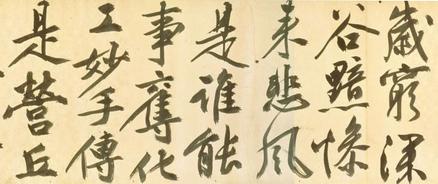 歲窮深
谷黯慘
来悲風
是誰能
事奪化
工妙手傳
是營丘